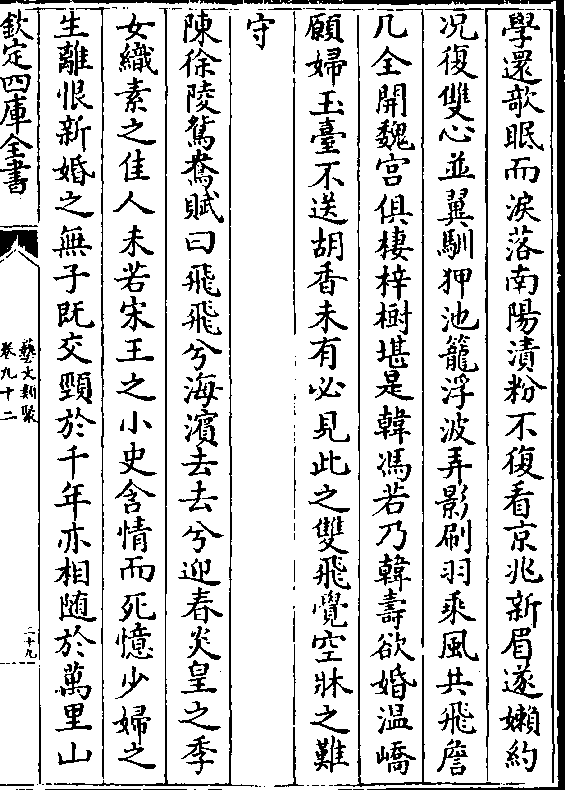 學還欹眠而淚落南陽漬粉不復看京兆新眉遂嬾約
况復雙心並翼馴狎池籠浮波弄影刷羽乘風共飛詹
几全開魏宫俱棲梓樹堪是韓馮若乃韓壽欲婚温嶠
願婦玉臺不送胡香未有必見此之雙飛覺空牀之難
守
陳徐陵鴛鴦賦曰飛飛兮海濱去去兮迎春炎皇之季
女織素之佳人未若宋王之小史含情而死憶少婦之
生離恨新婚之無子既交頸於千年亦相随於萬里山
欽定四庫全書
藝文類聚
卷九十二
二十九